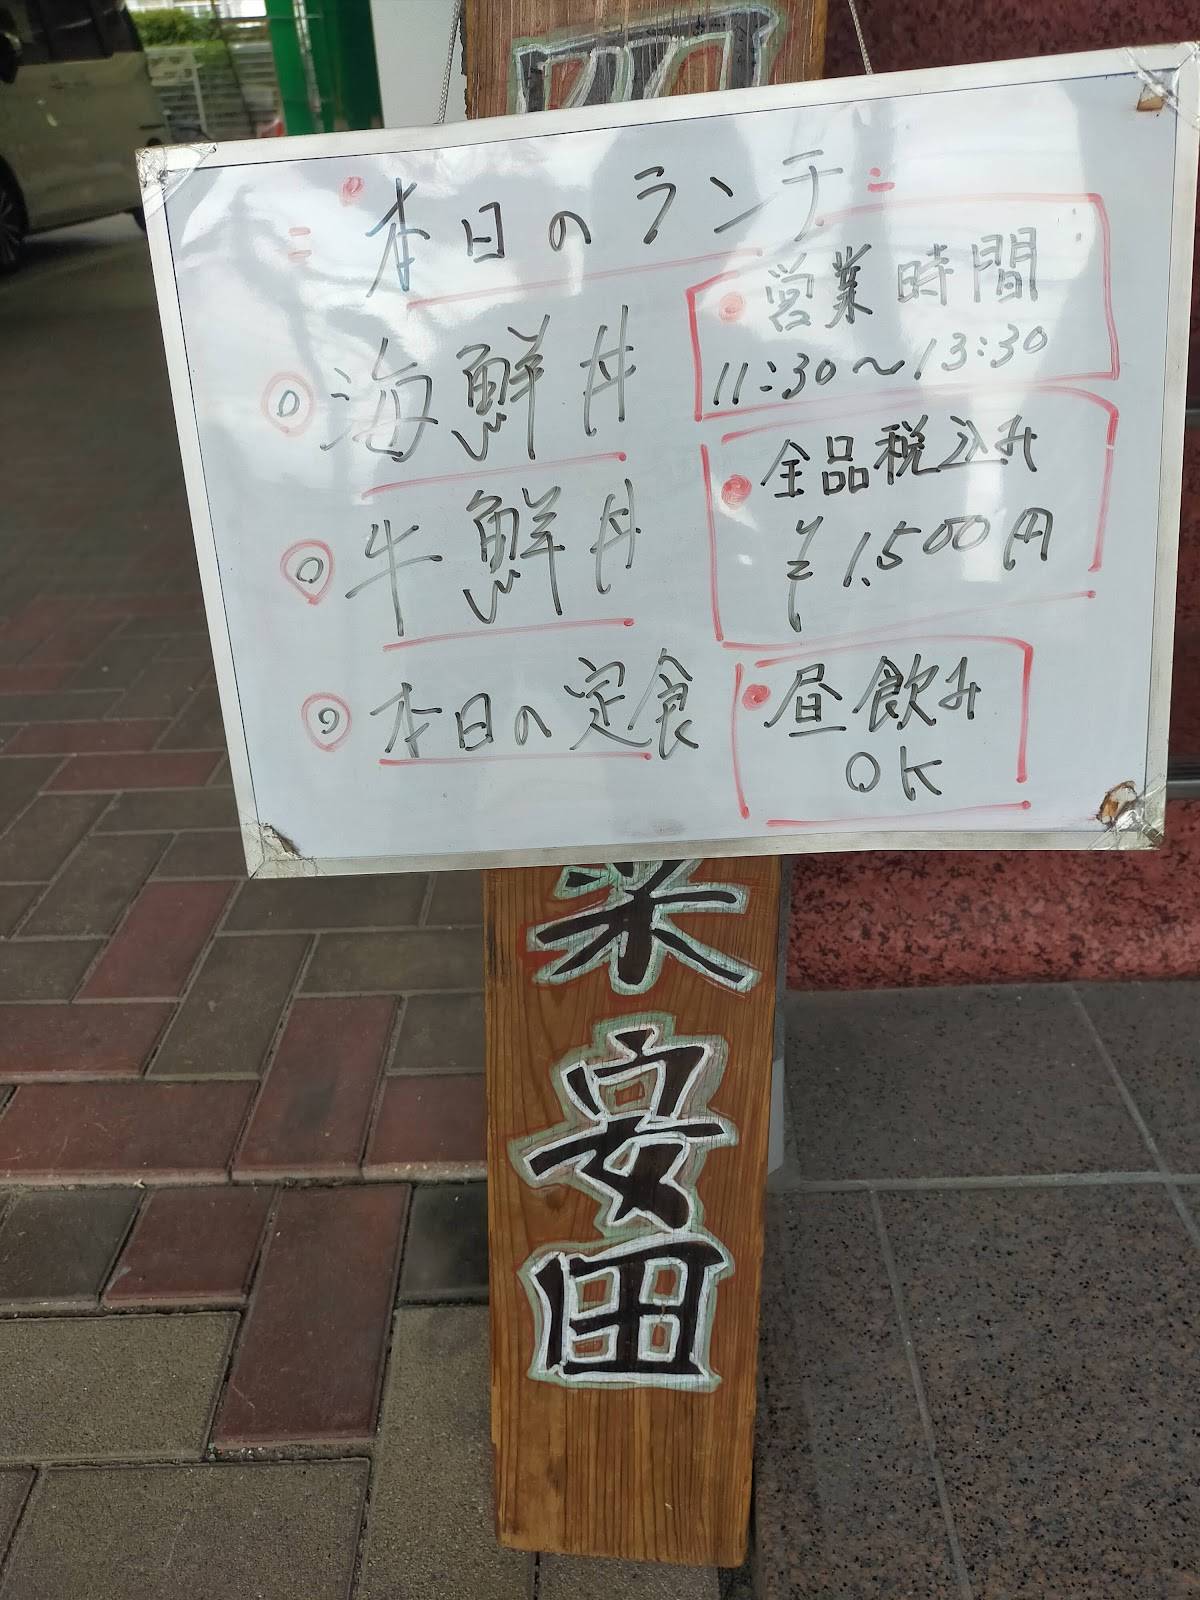 本日のランチ
海鮮丼
牛鮮丼
本日の定食
営業時間
11:30〜13:30
全品税込み
¥1,500円
昼飲み
OK
安田